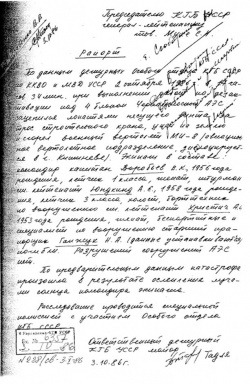 Председателю КГБ УССР
генерал-лейтенанту
тов. Мухе С.Н.
Рапорт
По данным дежурных Особого отдела КГБ СССР
по ККВО и МВД УССР 2 октября
34 мин. при выполнении работ по дез
активации над 4 блоком Чернобыльской АЭС
зацепился лопастями несущего винта за
трос строительного крана, упал на землю
и сгорел военный вертолет МИ-8
вертолетное подразделение, дислоцируе
тся в г. Кишиневе). Экипаж в составе:
командир капитан Воробьев В.К., 1956 года
рождения, летчик 1 класса, штурман
лейтенант Юнгкинд А.Е., 1958 года рожде
ния, летчик 3 класса, борттехник
Христич Л.И.
1953 года рождения, и
специалист по вооружению старший пра
порщик Ганжук Н.А. (данные устанавливаются)
погибли. Разрушений сооружений АЭС
нет.
По предварительным данным катастрофа
произошла в результате ослепления луча
ми солнца командира экипажа.
Расследование проводится специальной
комиссией с участием Особого отдела
КГБ СССР.
Ответственный дежурный
КГБ УССР майор
3.10.86г.